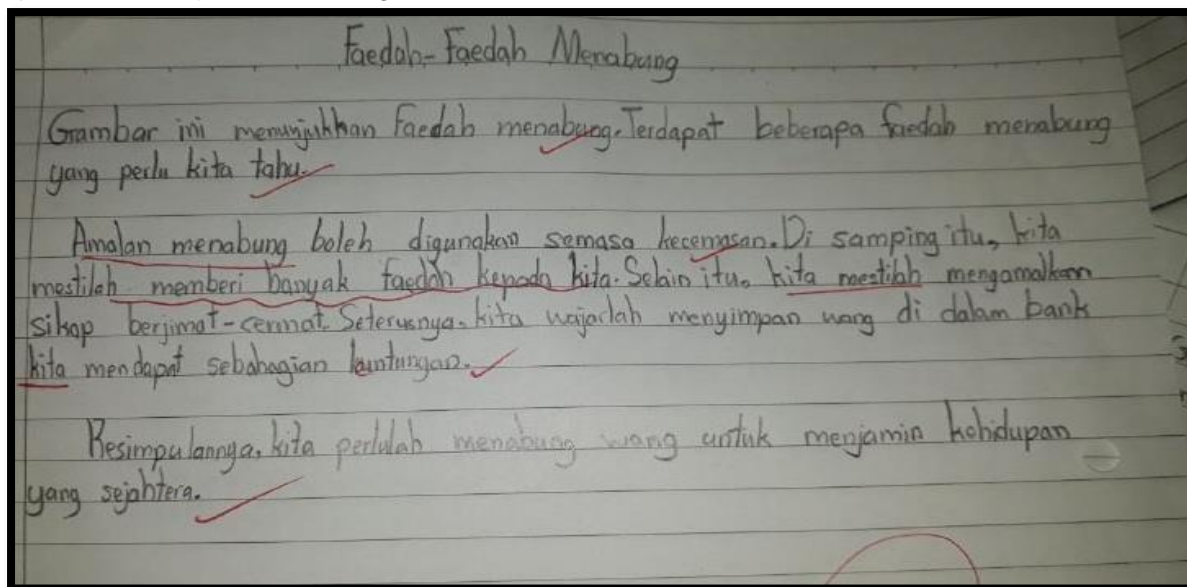 Faedah-Faedah Menabung
Gambar ini menunjukkan Faedah menabung. Terdapat beberapa faedah menabung
yang perlu kita tahu.
Amalan menabung boleh digunakan semasa kecemasan. Di samping itu, kita
mestilah memberi banyak faedah kepada kita. Selain itu, kita mestilah mengamalkan
sikap berjimat-cermat. Seterusnya, kita wajarlah menyimpan wang di dalam bank
kita mendapat sebahagian keuntungan.
Kesimpulannya, kita perlulah menabung wang untuk menjamin kehidupan
yang sejahtera.